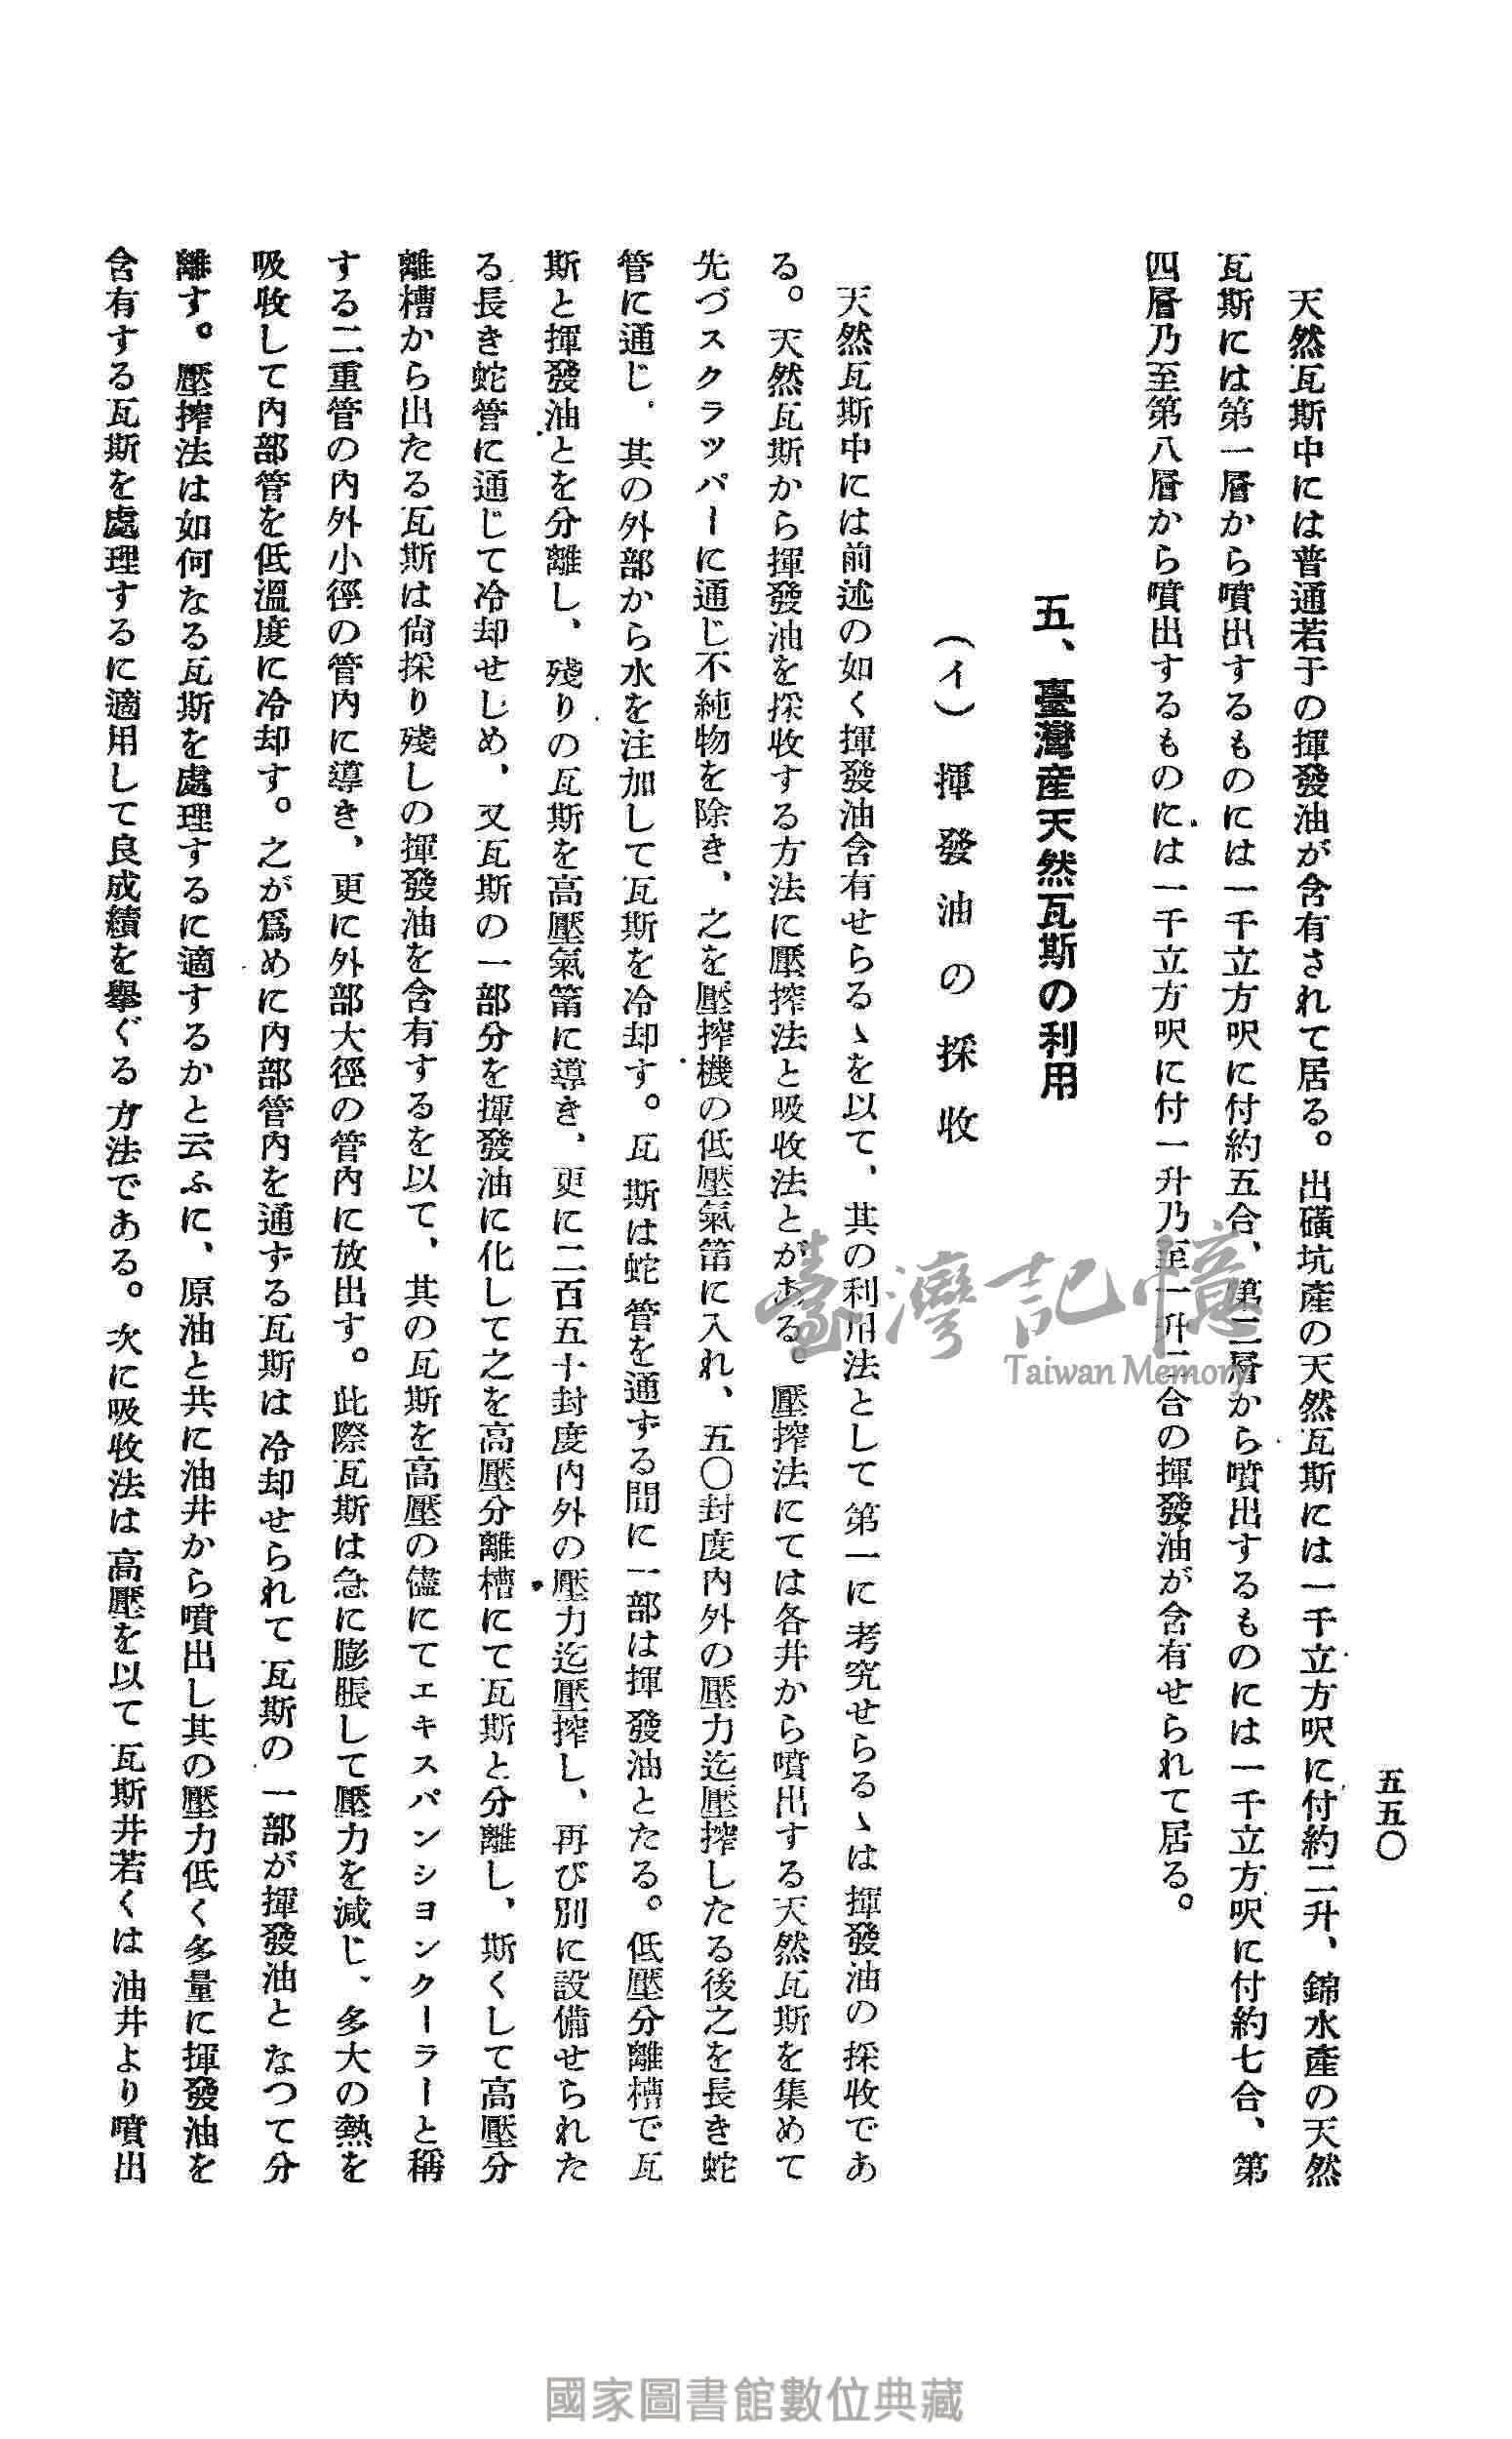 五五〇
天然瓦斯中には普通若于の揮發油が含有されて居る。出磺坑產の天然瓦斯には一千立方呎に付約二升、錦水產の天然
瓦斯には第一層から噴出するものには一千立方呎に付約五合、第三層から噴出するものには一千立方呎に付約七合、第
四層乃至第八層から噴出するものには一千立方呎に付一升乃至一升二合の揮發油が含有せられて居る。
五、臺灣產天然瓦斯の利用
(イ) 揮發油の採收
天然瓦斯中には前述の如く揮發油含有せらるゝを以て、其の利用法として第一に考究せらるゝは揮發油の採收であ
る。天然瓦斯から揮發油を採收する方法に壓搾法と吸收法とがある。壓搾法にては各井から噴出する天然瓦斯を集めて
先づスクラツパーに通じ不純物を除き、之を壓搾機の低壓氣筩に入れ、五〇封度內外の壓力迄壓搾したる後之を長き蛇
管に通じ、其の外部から水を注加して瓦斯を冷却す。瓦斯は蛇管を通ずる間に一部は揮發油とたる。低壓分離槽で瓦
斯と揮發油とを分離し、殘りの瓦斯を高壓氣筩に導き、更に二百五十封度內外の壓力迄壓搾し、再び別に設備せられた
る長き蛇管に通じて冷却せしめ、又瓦斯の一部分を揮發油に化して之を高壓分離槽にて瓦斯と分離し、斯くして高壓分
離槽から出たる瓦斯は尙採り殘しの揮發油を含有するを以て、其の瓦斯を高壓の儘にてエキスパンシヨンクーラーと稱
する二重管の內外小徑の管內に導き、更に外部大徑の管內に放出す。此際瓦斯は急に膨脹して壓力を減じ、多大の熱を
吸收して內部管を低溫度に冷却す。之が爲めに內部管內を通ずる瓦斯は冷却せられて瓦斯の一部が揮發油となつて分
離す。壓搾法は如何なる瓦斯を處理するに適するかと云ふに、原油と共に油井から噴出し其の壓力低く多量に揮發油を
含有する瓦斯を處理するに適用して良成績を擧ぐる方法である。次に吸收法は高壓を以て瓦斯井若くは油井より噴出
臺灣記憶
Taiwan Memory
國家圖書館數位典藏